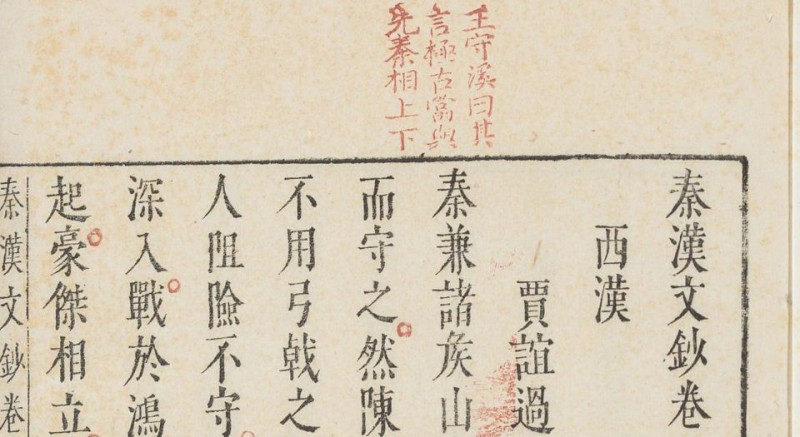 王守溪曰其
言極古當與
先秦相上下
秦漢文鈔卷
西漢
賈誼過
秦兼諸侯山
而守之然陳
不用弓戟之
人阻險不守
深入戰於鴻
起豪傑相立
秦漢文鈔卷